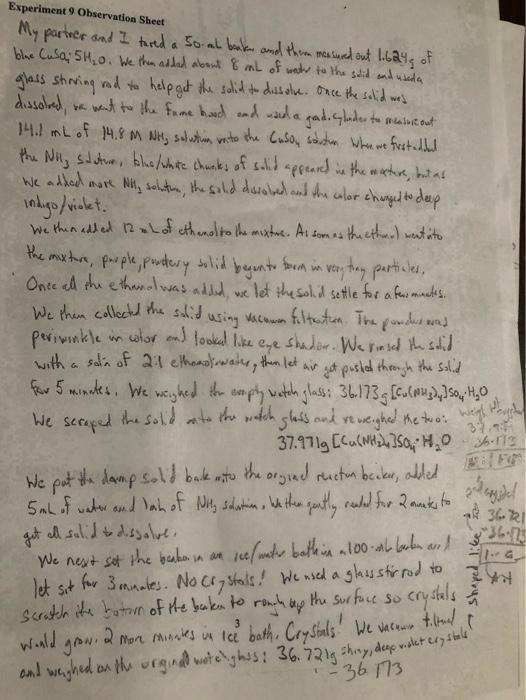 Experiment 9 Observation Sheet
My partner and I tared a 50-mL beaker and then measured out 1.624g of
blue CuSO4·5H2O. We then added about 8 mL of water to the solid and used a
glass stirring rod to help get the solid to dissolve. Once the solid was
dissolved, we went to the fume hood and used a grad. cylinder to measure out
14.1 mL of 14.8 M NH3 solution into the CuSO4 solution. When we first added
the NH3 solution, blue/white chunks of solid appeared in the mixture, but as
we added more NH3 solution, the solid dissolved and the color changed to deep
indigo/violet.
We then added 12 mL of ethanol to the mixture. As soon as the ethanol went into
the mixture, purple, powdery solid began to form in very tiny particles.
Once all the ethanol was added, we let the solid settle for a few minutes.
We then collected the solid using vacuum filtration. The powder was
periwinkle in color and looked like eye shadow. We rinsed the solid
with a soln of 2:1 ethanol:water, then let air get pushed through the solid
for 5 minutes. We weighed the empty watch glass: 36.173g [Cu(NH3)4]SO4·H2O
We scraped the solid onto the watch glass and reweighed the two:
37.971g [Cu(NH3)4]SO4·H2O
37.971
-36.173
We put the damp solid back into the original reaction beaker, added
5 mL of water and 1 mL of NH3 solution. We then gently heated for 2 minutes to
get all solid to dissolve.
36.721
-36.173
We next set the beaker in an ice/water bath in a 100-mL beaker and
let sit for 3 minutes. No crystals! We used a glass stir rod to
scratch the bottom of the beaker to rough up the surface so crystals
would grow. 2 more minutes in ice bath. Crystals! We vacuum filtered
and weighed on the original watch glass: 36.721g shiny, deep violet crystals
-36.173
shaped like